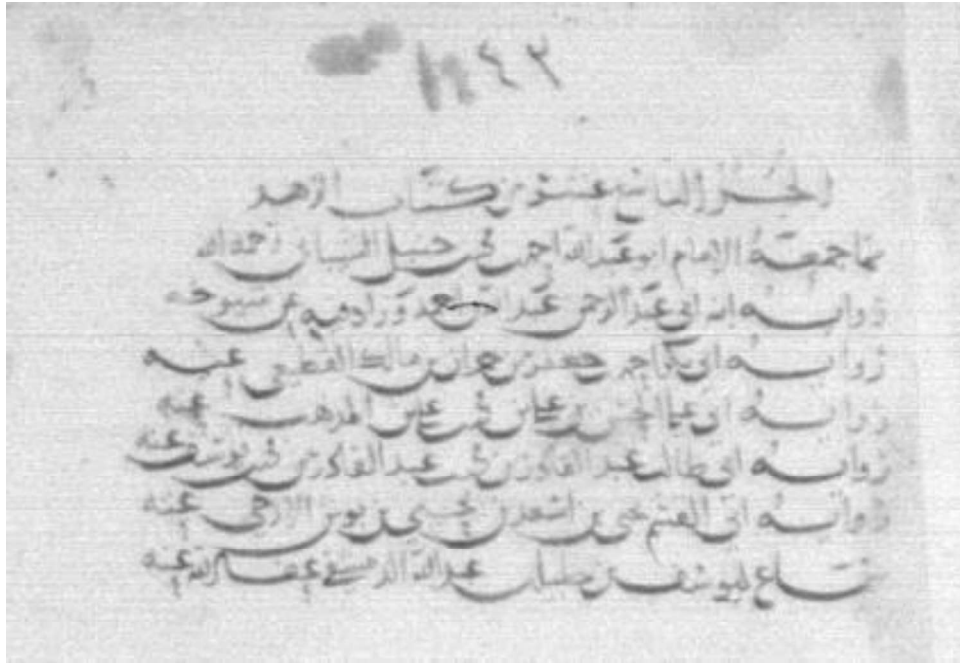 ٤٢
الجزء التاسع عشر من كتاب الزهد
مما جمعه الامام ابو عبد الله احمد بن محمد بن حنبل الشيباني رحمه الله
رواية ابنه ابي عبد الرحمن عبد الله بن احمد وزاد فيه عن شيوخه
رواية ابي بكر احمد بن جعفر بن حمدان بن مالك القطيعي عنه
رواية ابي علي الحسن بن علي بن محمد بن علي بن المذهب عنه
رواية ابي طالب عبد القادر بن محمد بن عبد القادر بن محمد بن يوسف عنه
رواية ابي القسم يحيى بن اسعد بن يحيى بن بوش الازجي عنه
سماع ليوسف بن خليل بن عبد الله الدمشقي عفا الله عنه